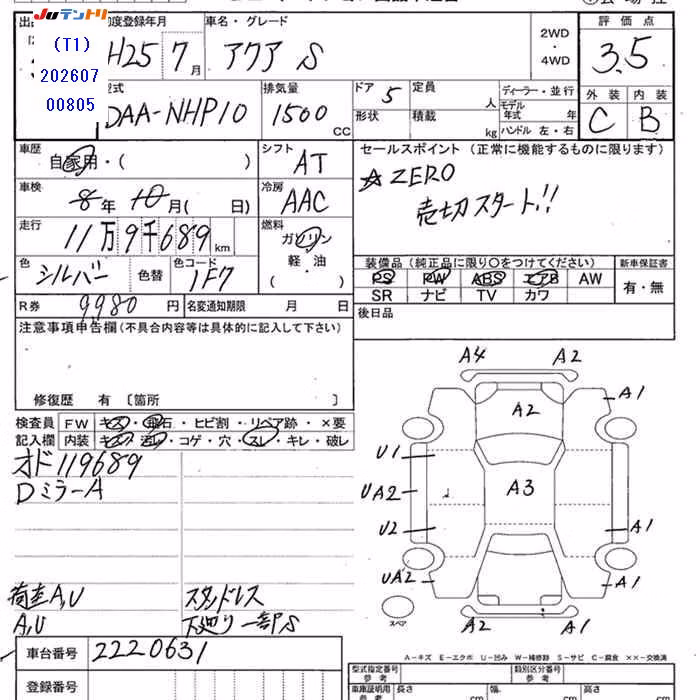 JUテントリ
(T1)
202607
00805
初度登録年月
H25 7月
車名・グレード
アクア S
2WD
・
4WD
評価点
3.5
外装 内装
C B
型式
DAA-NHP10
排気量
1500 CC
ドア 5
形状
定員 人
積載 kg
ディーラー・並行
モデル年式 年
ハンドル 左・右
車歴
自家用・( )
シフト
AT
車検
8年 10月( 日)
冷房
AAC
走行
11万9千689km
燃料
ガソリン
・
軽・油
( )
色
シルバー
色替
色コード
1F7
R券
9980円
名変通知期限 月 日
セールスポイント(正常に機能するものに限ります)
☆ZERO
売切スタート!!
装備品(純正品に限り○をつけてください)
PS PW ABS エアB AW
SR ナビ TV カワ
新車保証書
有・無
後日品
注意事項申告欄(不具合内容等は具体的に記入して下さい)
修復歴 有〔箇所 〕
検査員 FW キズ・飛石・ヒビ割・リペア跡・×要
記入欄 内装 キズ・汚レ・コゲ・穴・スレ・キレ・破レ
オド119689
Dミラー A
荷室A,U
A,U
スタッドレス
下廻り一部S
A4 A2
A1
A2
U1
UA2
A3
U2
A1
UA2
A1
スペア
A2 A1
A-キズ E-エクボ U-凹み W-補修跡 S-サビ C-腐食 ××-交換済
車台番号 2220631
登録番号
型式指定番号
参考
類別区分番号
参考
車庫証明用
参考
長さ cm
幅 cm
高さ cm